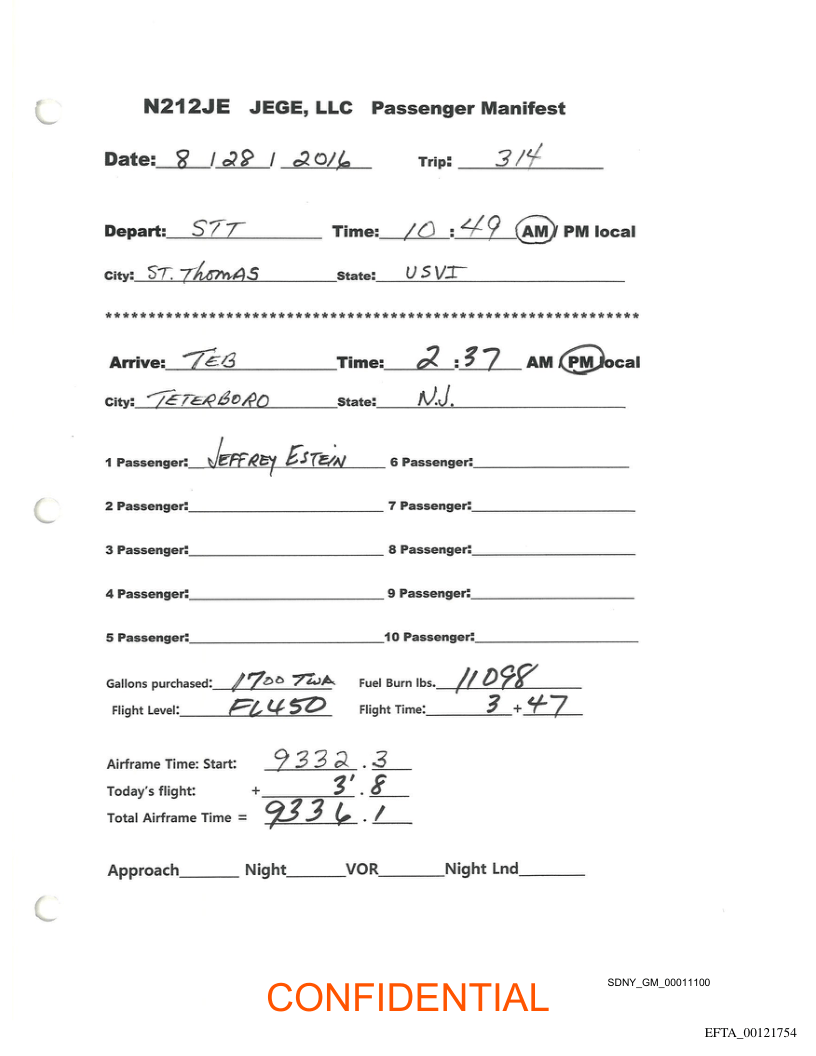 N212JE JEGE, LLC Passenger Manifest
Date: 8 / 28 / 2016 Trip: 314
Depart: STT Time: 10 : 49 AM / PM local
City: ST. Thomas State: USVI
***************************************************************
Arrive: TEB Time: 2 : 37 AM / PM local
City: TETERBORO State: N.J.
1 Passenger: JEFFREY ESTEIN 6 Passenger:
2 Passenger: 7 Passenger:
3 Passenger: 8 Passenger:
4 Passenger: 9 Passenger:
5 Passenger: 10 Passenger:
Gallons purchased: 1700 TWA Fuel Burn lbs. 11098
Flight Level: FL450 Flight Time: 3 + 47
Airframe Time: Start: 9332 . 3
Today's flight: + 3' . 8
Total Airframe Time = 9336 . 1
Approach Night VOR Night Lnd
SDNY_GM_00011100
CONFIDENTIAL
EFTA_00121754